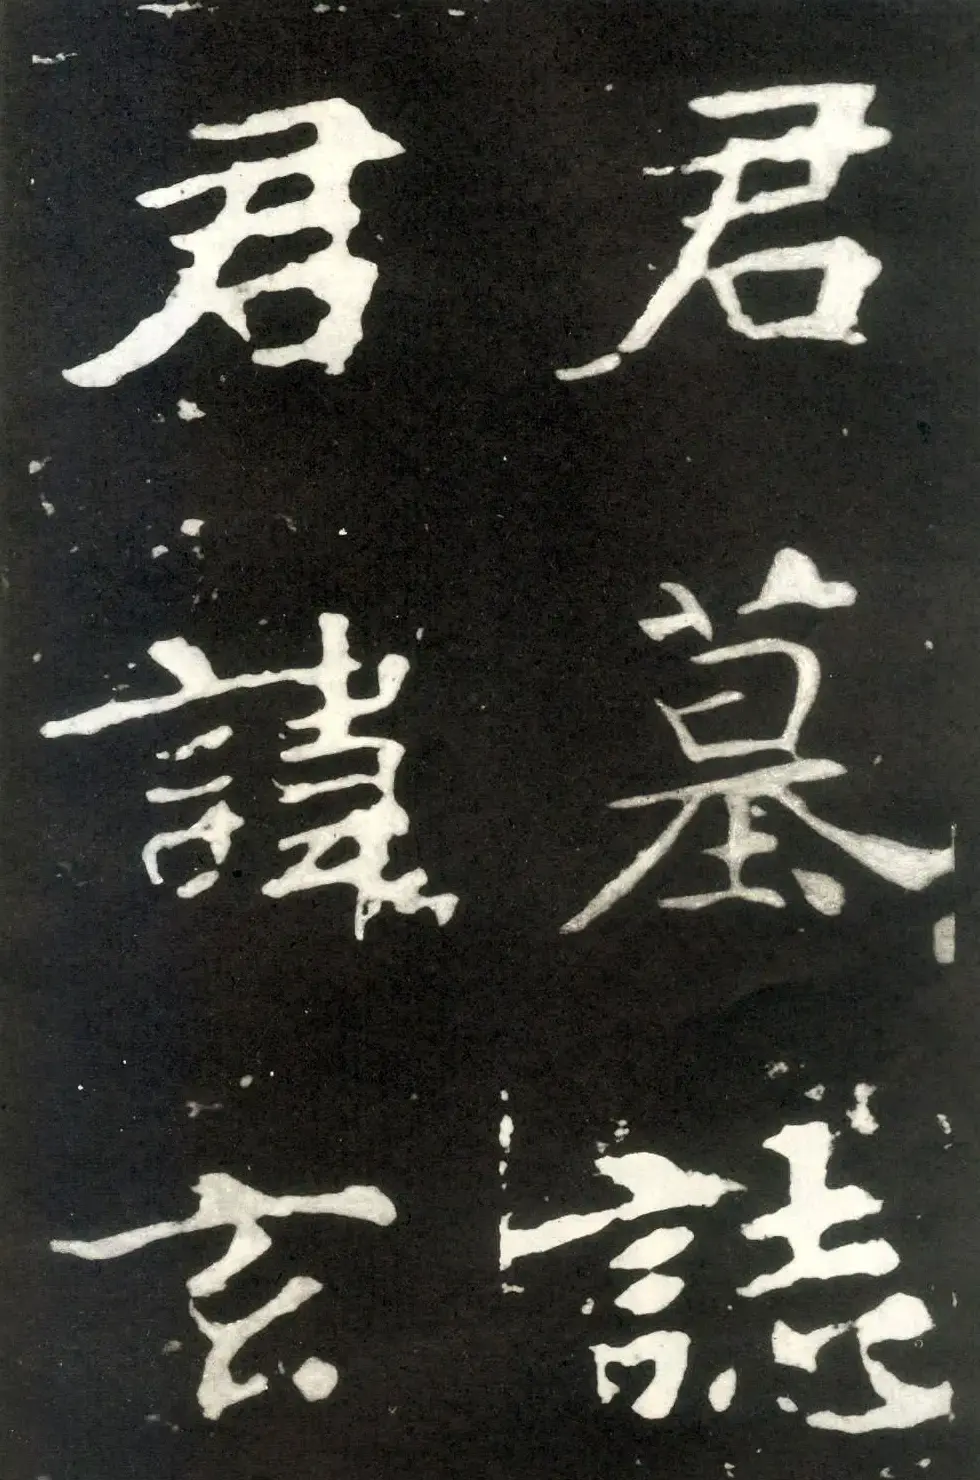 君墓誌
君諱玄